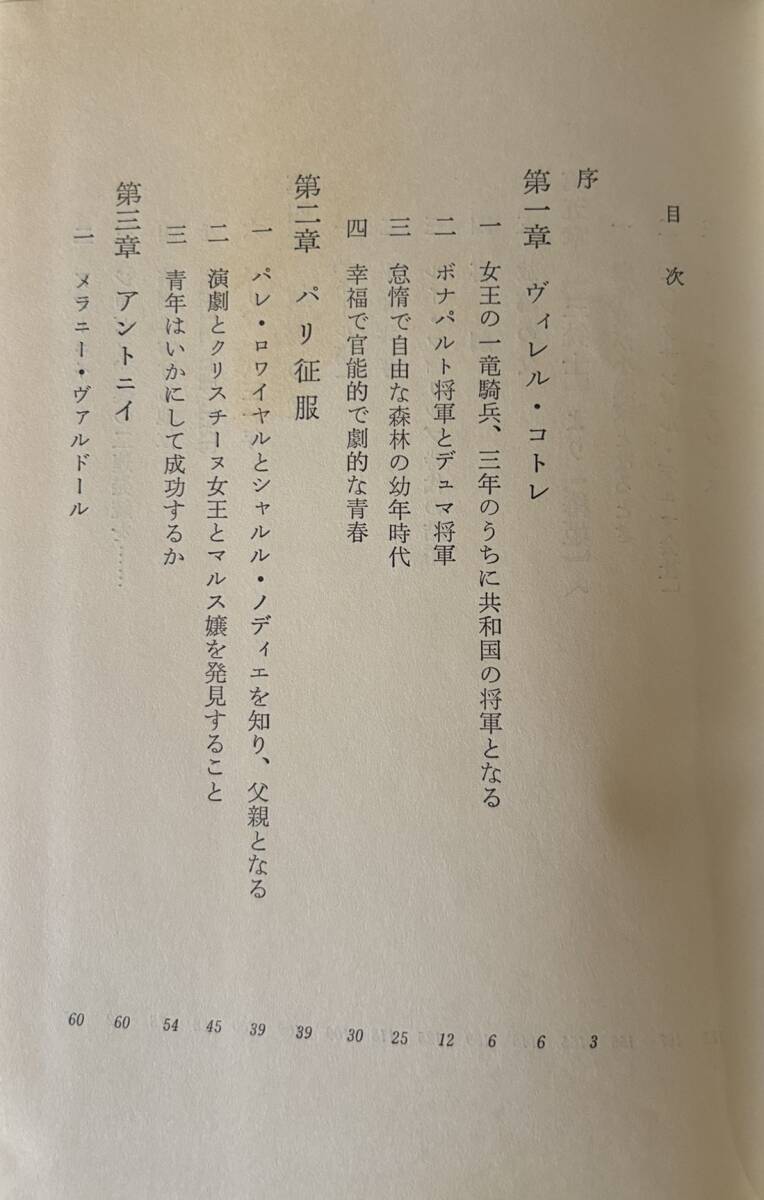 目次
序 3
第一章 ヴィレル・コトレ 6
一 女王の一竜騎兵、三年のうちに共和国の将軍となる 6
二 ボナパルト将軍とデュマ将軍 12
三 怠惰で自由な森林の幼年時代 25
四 幸福で官能的で劇的な青春 30
第二章 パリ征服 39
一 パレ・ロワイヤルとシャルル・ノディエを知り、父親となる 39
二 演劇とクリスチーヌ女王とマルス嬢を発見すること 45
三 青年はいかにして成功するか 54
第三章 アントニイ 60
一 メラニー・ヴァルドール 60